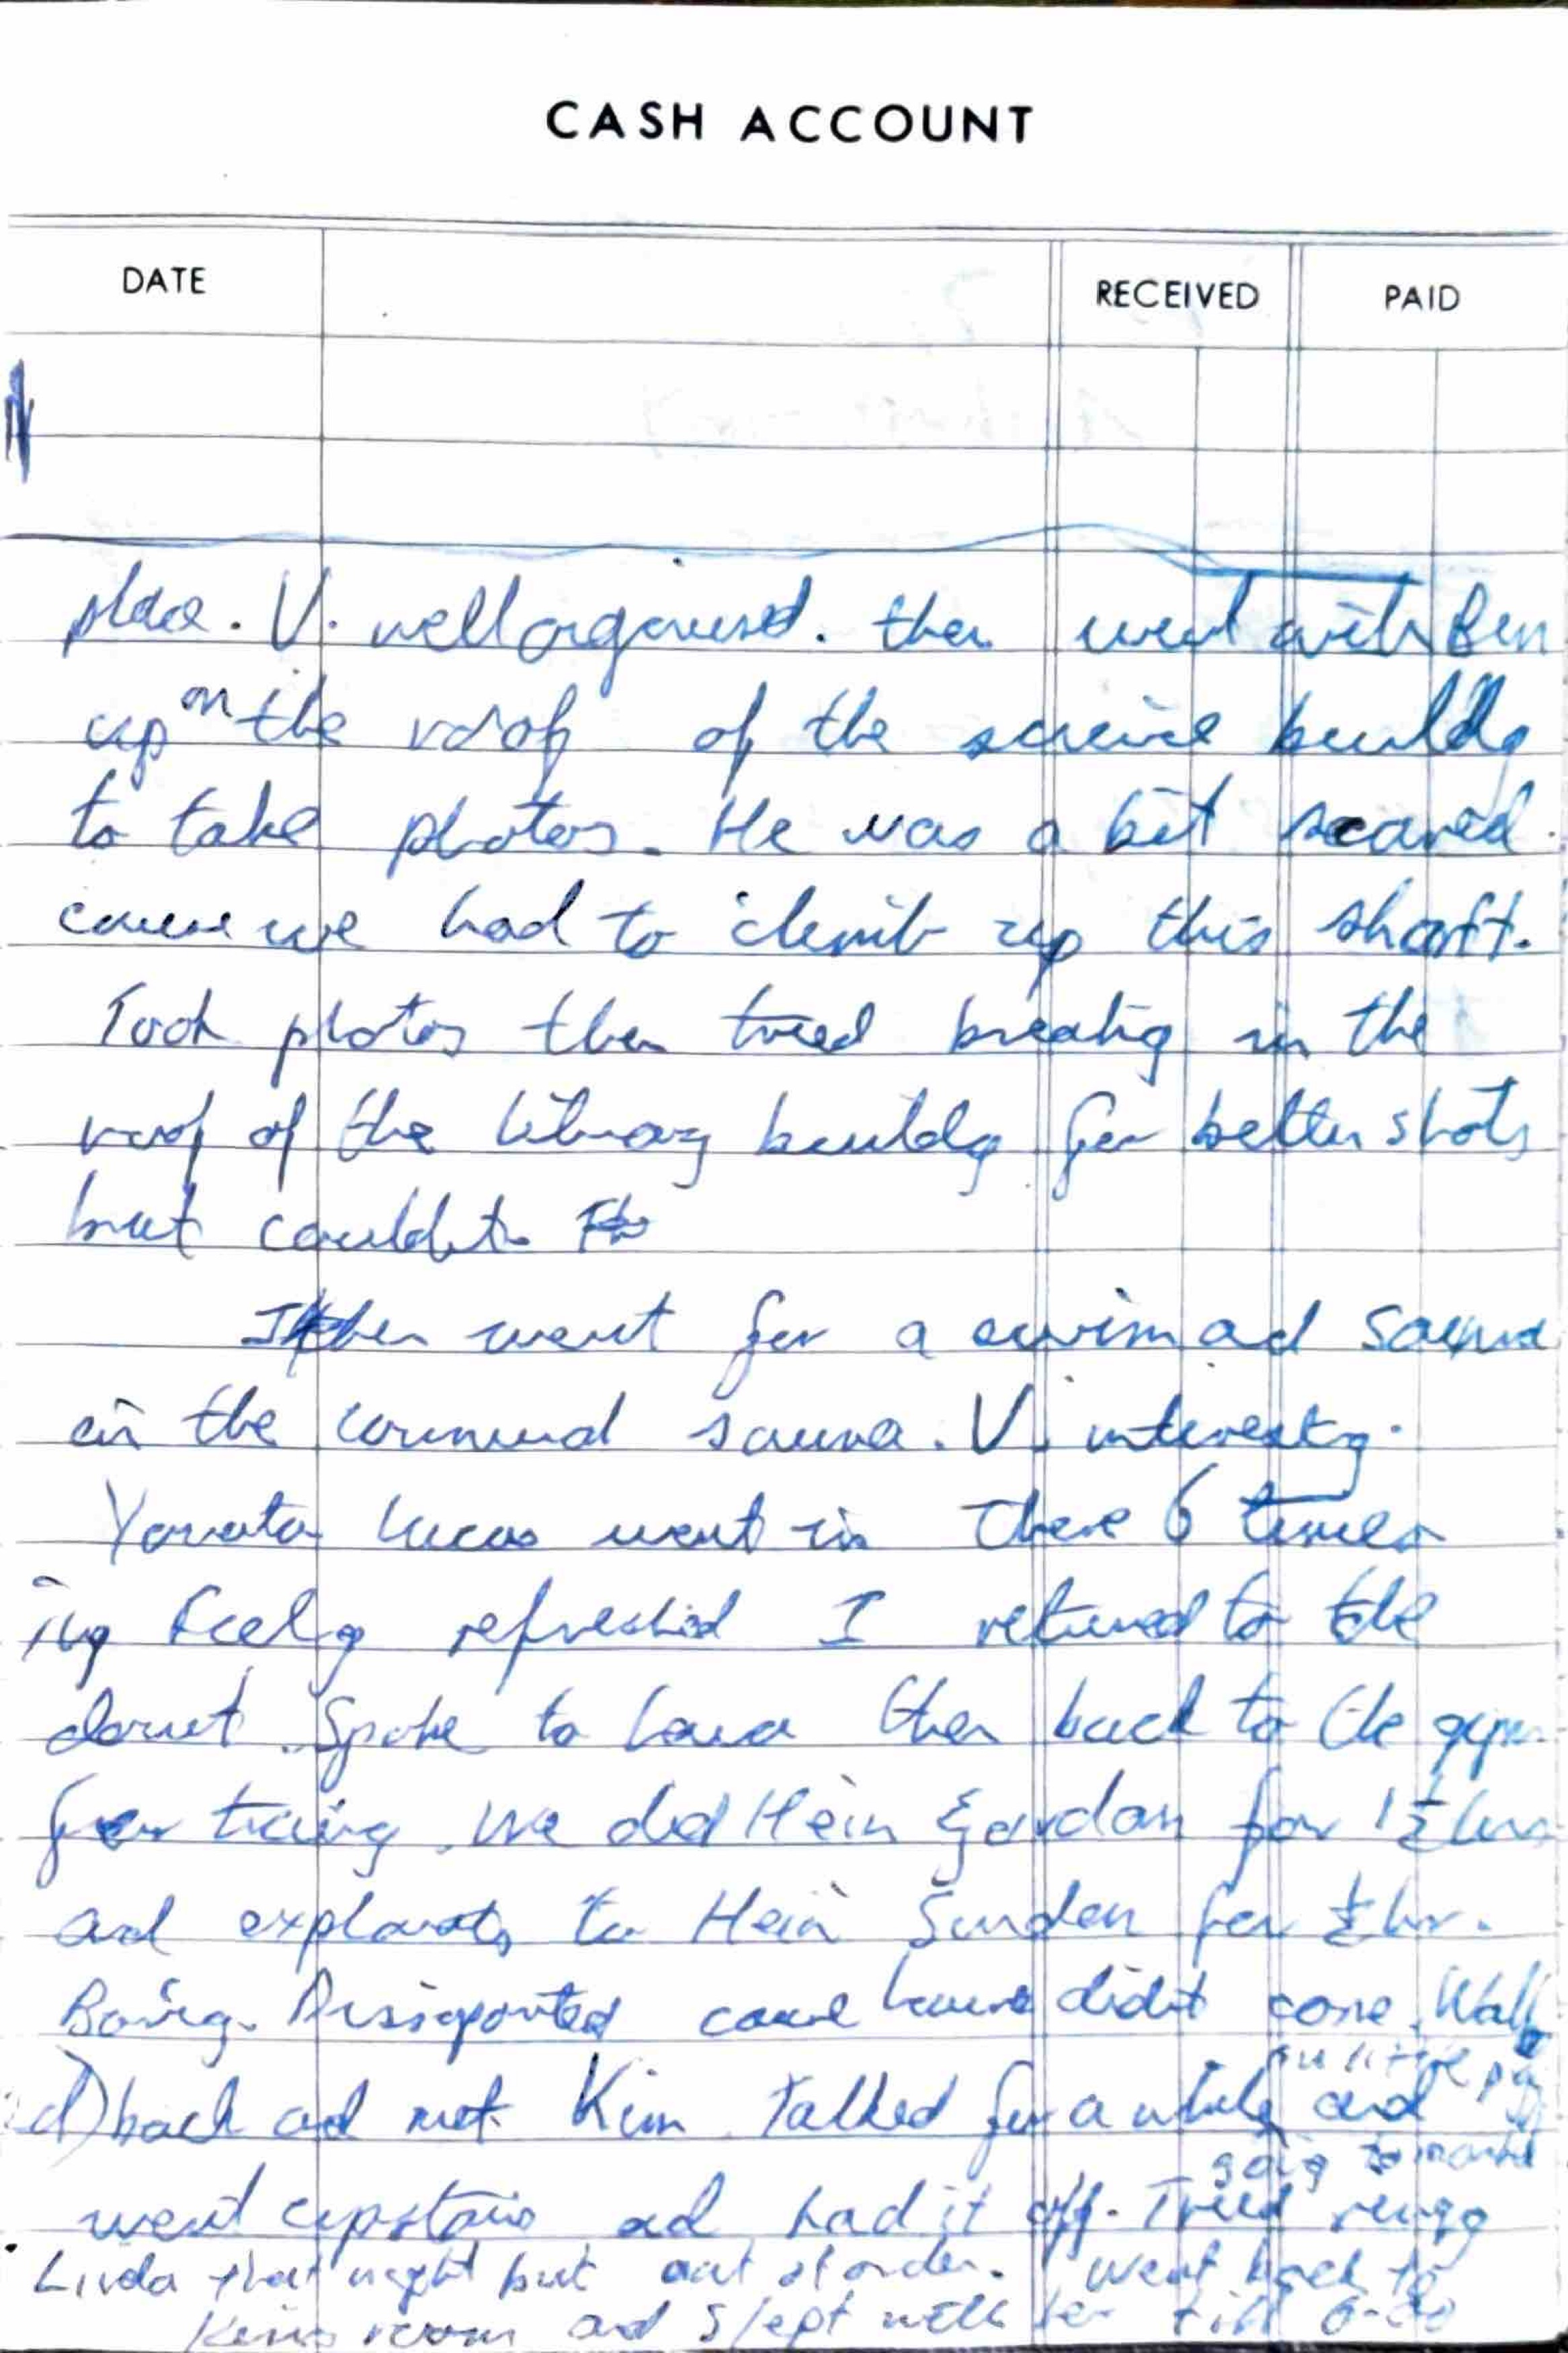 CASH ACCOUNT
DATE RECEIVED PAID
place. V. well organised. then went with Ben
up on the roof of the science buildg
to take photos. He was a bit scared
cause we had to climb up this shaft.
Took photos then tried breakg in the
roof of the library buildg for better shots
but couldt.
I then went for a swim ad sauna
in the communal sauna. V. interestg.
Lucas went in there 6 times
Feelg refreshed I returned to the
domt. Spoke to Laura then back to the gym
for traing. We did Hein Godan for 1½ hrs
ad explanats to Hein Sundan for ½ hr.
Boring. Dissiponted cause Laura didt come. Walk
back ad met Kim. Talked for a while and
going
went upstairs ad had it off. Tried ringg
Linda that night but out of order. Went back to
Kims room ad slept with her till 6-00